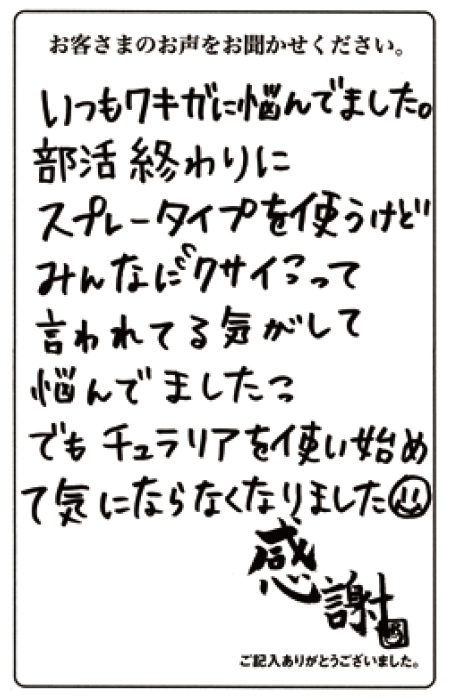 お客さまのお声をお聞かせください。
いつもワキガに悩んでました。
部活終わりに
スプレータイプを使うけど
みんなに〝クサイ〟って
言われてる気がして
悩んでました。
でもチュラリアを使い始め
て気にならなくなりました
感謝
ご記入ありがとうございました。